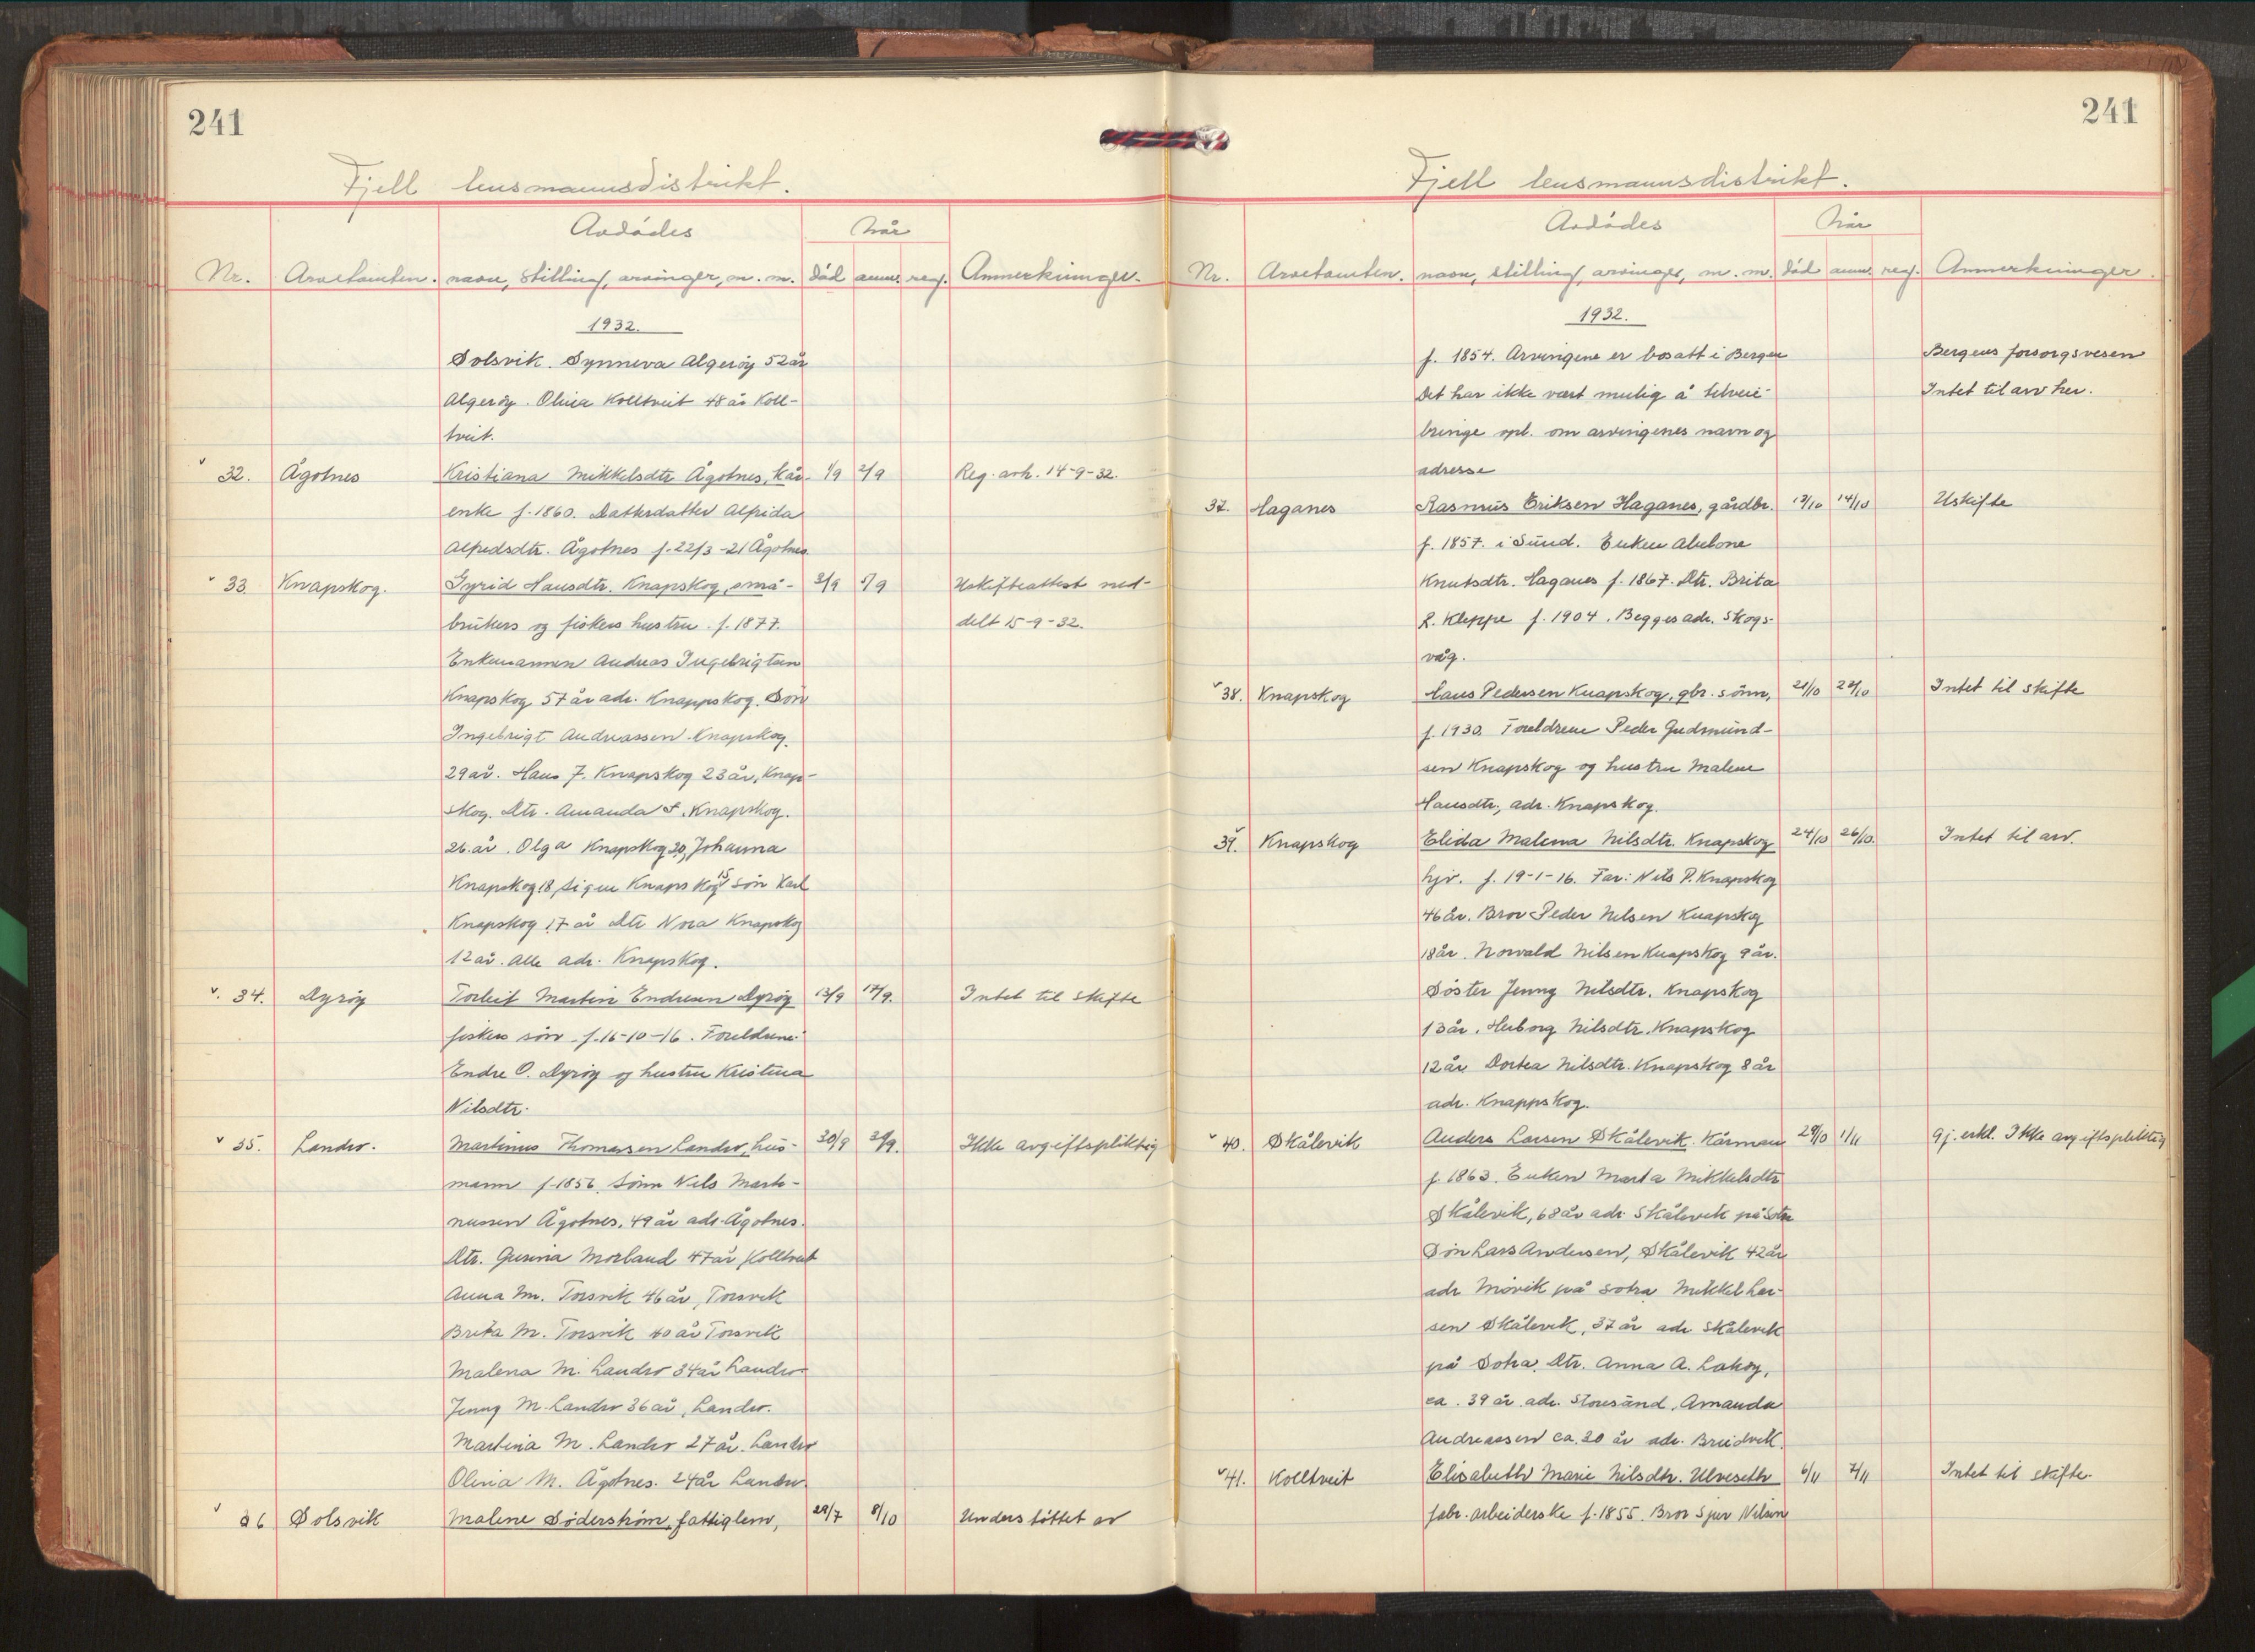 241
Fjell lensmannsdistrikt.
Avdødes
Når
Nr. Arvetomten. navn, stilling, arvinger, m. m. död anm. reg. Anmerkninger.
1932.
Solsvik. Synneva Algeröy 52 år
Algeröy. Olina Kolltveit 48 år Koll-
tveit.
32. Ågotnes Kristiana Mikkelsdtr Ågotnes, kår- 1/9 2/9 Reg. avh. 14-9-32.
enke f. 1860. Datterdatter Alfrida
Alfredsdtr. Ågotnes f. 22/3-21 Ågotnes
33. Knapskog. Gyrid Hansdtr. Knapskog, små- 3/9 5/9 Uskifteattest med-
brukers og fiskers hustru. f. 1877. delt 15-9-32.
Enkemannen Andreas Ingebrigtsen
Knapskog 57 år adr. Knappskog. Sön
Ingebrigt Andreassen Knapskog.
29 år. Hans J. Knapskog 23 år, Knap-
skog. Dtr. Amanda I. Knapskog.
26 år. Olga Knapskog 20, Johanna
Knapskog 18, Signe Knapskog 15 sön Karl
Knapskog 17 år dtr Nora Knapskog
12 år. Alle adr. Knapskog.
34. Dyröy Torleif Martin Endresen Dyröy 13/9 17/9. Intet til skifte
fiskers sön f. 16-10-16. Foreldrene:
Endre O. Dyröy og hustru Kristina
Nilsdtr.
35. Landro. Martinus Thomassen Landro, hus- 20/9 Ikke avgiftspliktig
mann f. 1856. Sönn Nils Marti-
nussen Ågotnes, 49 år adr. Ågotnes.
Dtr. Gurina Morland 47 år, Kolltveit
Anna M. Torsvik 46 år, Torsvik
Brita M. Torsvik 40 år Torsvik
Malena M. Landro 34 år Landro
Jenny M. Landro 36 år, Landro.
Martina M. Landro 27 år. Landro
Olina M. Ågotnes. 24 år Landro.
36 Solsvik Malene Söderström, fattiglem, 29/7 8/10 Understöttet av
241
Fjell lensmannsdistrikt.
Avdødes
Når
Nr. Arvetomten. navn, stilling, arvinger, m. m. död anm. reg. Anmerkninger.
1932.
f. 1854. Arvingene er bosatt i Bergen Bergens forsorgsvesen
Det har ikke vært mulig å tilveie- Intet til arv her.
bringe opl. om arvingenes navn og
adresse
37. Haganes Rasmus Eriksen Haganes, gårdbr. 13/10 14/10 Uskifte
f. 1857. i Sund. Enken Abelone
Knutsdtr. Haganes f. 1867. Dtr. Brita
R. Kleppe f. 1904. Begges adr. Skogs-
våg.
38. Knapskog Hans Pedersen Knapskog, gbr. sönn, 21/10 22/10 Intet til skifte
f. 1930. Foreldrene Peder Gudmund-
sen Knapskog og hustru Malene
Hansdtr., adr. Knapskog.
39. Knapskog Elida Malena Nilsdtr. Knapskog 24/10 26/10. Intet til arv.
hjv. f. 19-1-16. Far: Nils P. Knapskog
46 år. Bror Peder Nilsen Knapskog
18 år. Norvald Nilsen Knapskog 9 år.
Söster Jenny Nilsdtr. Knapskog
13 år. Herborg Nilsdtr. Knapskog
12 år Dortea Nilsdtr. Knapskog 8 år
adr. Knappskog.
40. Skålevik Anders Larsen Skålevik. Kårmann 29/10 1/11 Gj. erkl. Ikke avgiftspliktig
f. 1863. Enken Marta Mikkelsdtr
Skålevik, 68 år adr. Skålevik på Sotra
Sön Lars Andersen, Skålevik 42 år
adr Mövik på Sotra Mikkel Lar-
sen Skålevik, 37 år adr Skålevik
på Sotra. Dtr. Anna A. Laköy,
ca. 39 år adr. Storesund, Amanda
Andreassen ca. 20 år adr. Breidvik.
41. Kolltveit Elisabeth Marie Nilsdtr. Ulveseth 6/11 7/11 Intet til skifte.
fabr. arbeiderske f. 1855. Bror Sjur Nilsen